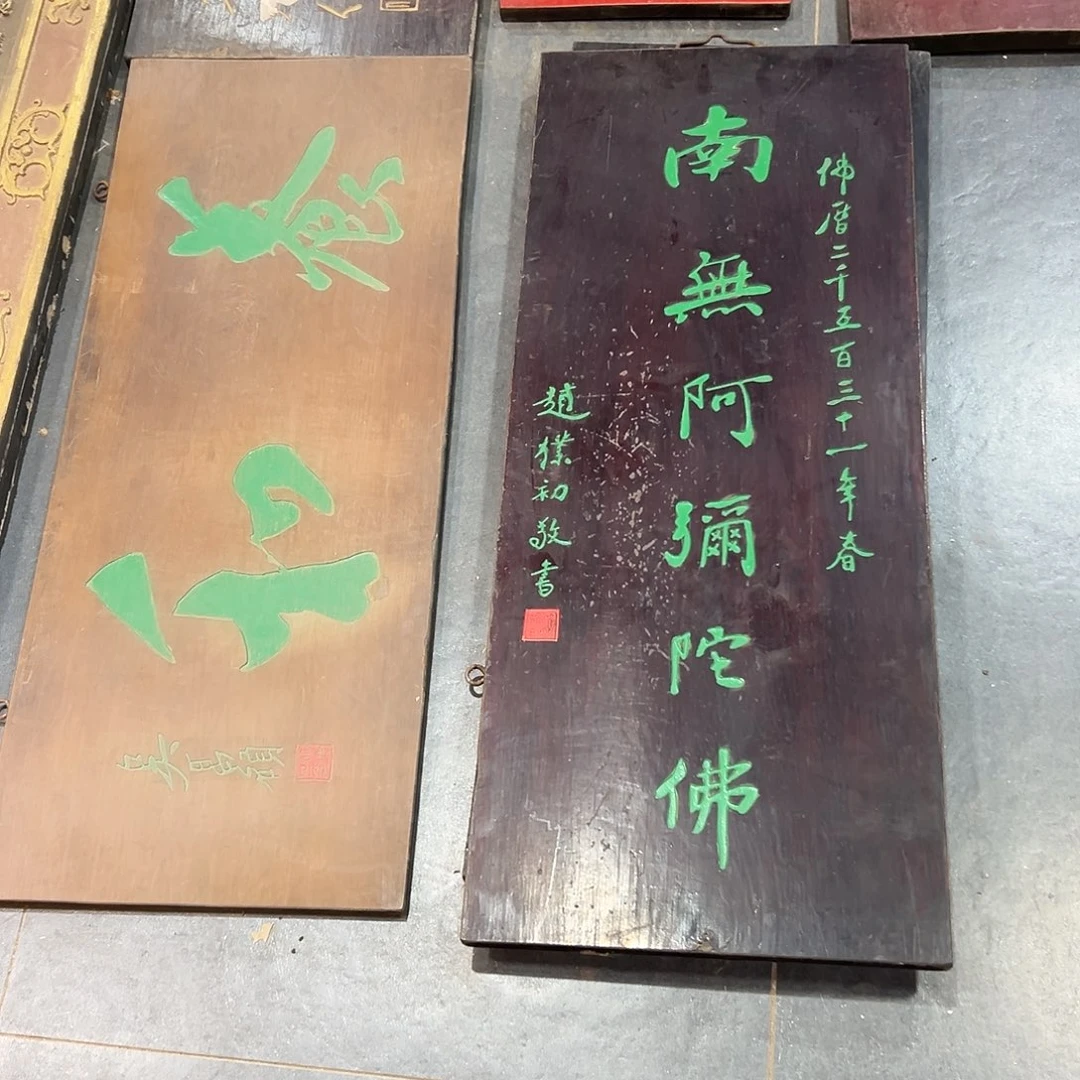 佛曆二千五百三十一年春
南無阿彌陀佛
趙樸初敬書
養和